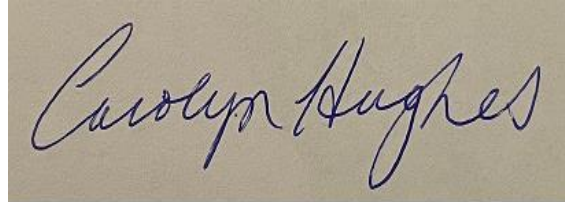 Carolyn Hughes